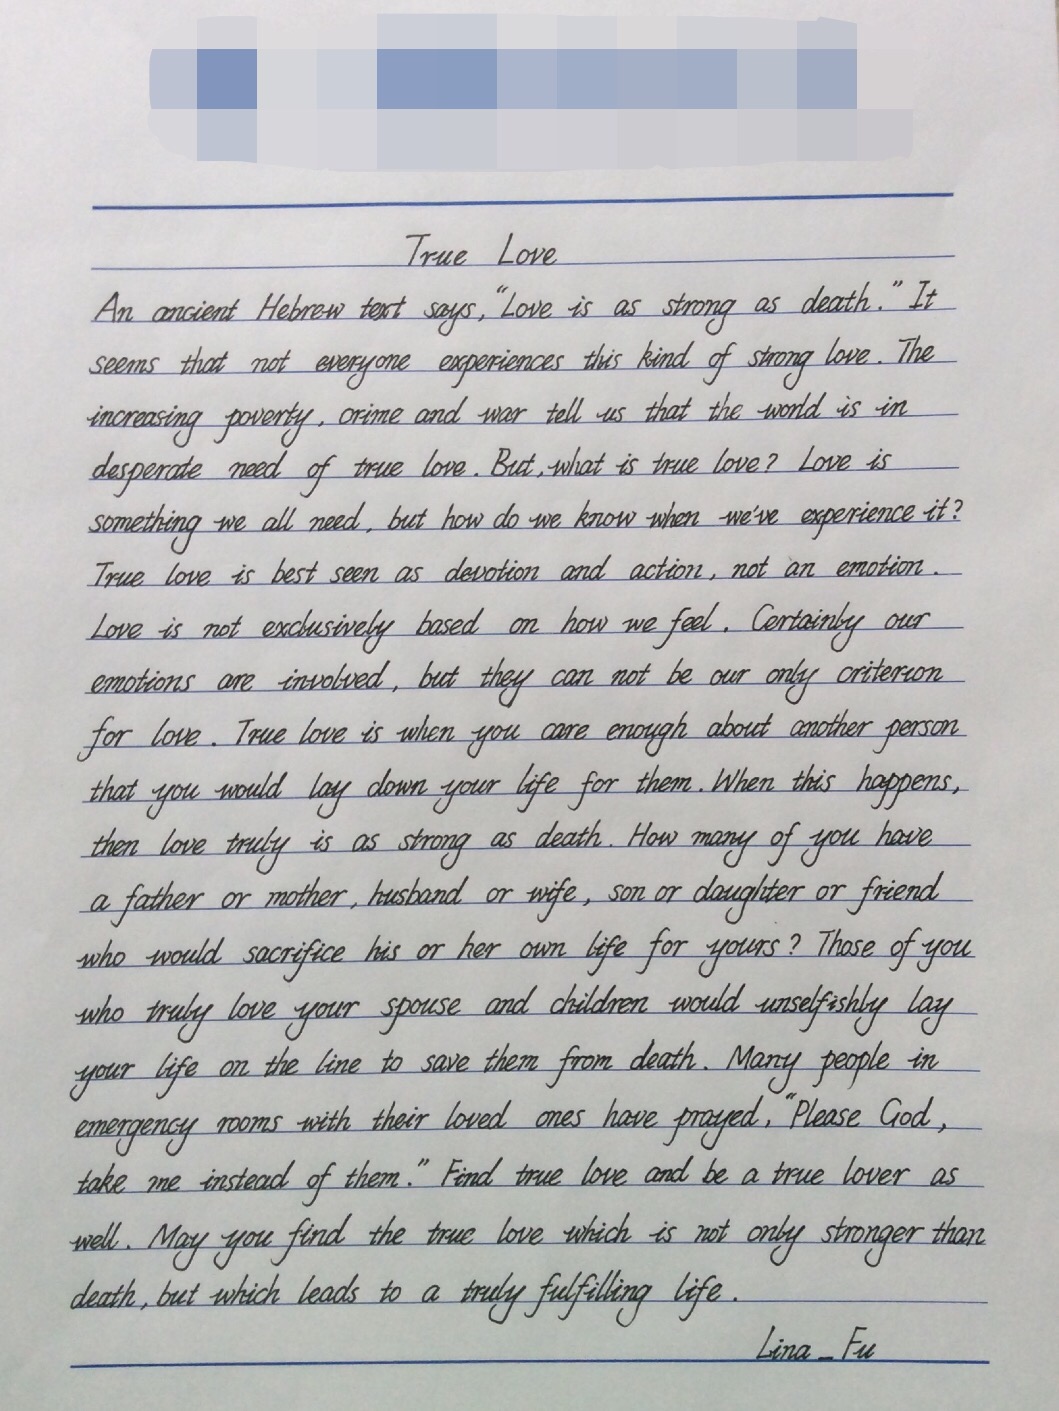 True Love
An ancient Hebrew text says, "Love is as strong as death." It
seems that not everyone experiences this kind of strong love. The
increasing poverty, crime and war tell us that the world is in
desperate need of true love. But, what is true love? Love is
something we all need, but how do we know when we've experience it?
True love is best seen as devotion and action, not an emotion.
Love is not exclusively based on how we feel. Certainly our
emotions are involved, but they can not be our only criterion
for love. True love is when you care enough about another person
that you would lay down your life for them. When this happens,
then love truly is as strong as death. How many of you have
a father or mother, husband or wife, son or daughter or friend
who would sacrifice his or her own life for yours? Those of you
who truly love your spouse and children would unselfishly lay
your life on the line to save them from death. Many people in
emergency rooms with their loved ones have prayed, "Please God,
take me instead of them." Find true love and be a true lover as
well. May you find the true love which is not only stronger than
death, but which leads to a truly fulfilling life.
Lina_Fu